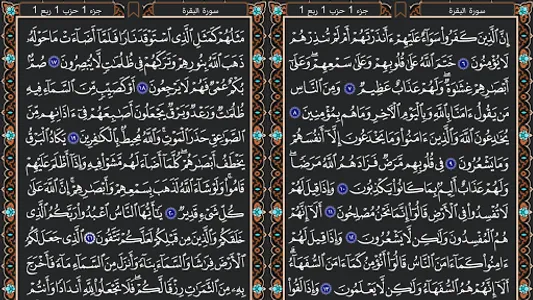 سورة البقرة
جزء 1 حزب 1 ربع 1
إِنَّ ٱلَّذِينَ كَفَرُوا۟ سَوَآءٌ عَلَيْهِمْ ءَأَنذَرْتَهُمْ أَمْ لَمْ تُنذِرْهُمْ
لَا يُؤْمِنُونَ ٦ خَتَمَ ٱللَّهُ عَلَىٰ قُلُوبِهِمْ وَعَلَىٰ سَمْعِهِمْ ۖ وَعَلَىٰٓ
أَبْصَٰرِهِمْ غِشَٰوَةٌ ۖ وَلَهُمْ عَذَابٌ عَظِيمٌ ٧ وَمِنَ ٱلنَّاسِ
مَن يَقُولُ ءَامَنَّا بِٱللَّهِ وَبِٱلْيَوْمِ ٱلْءَاخِرِ وَمَا هُم بِمُؤْمِنِينَ ٨
يُخَٰدِعُونَ ٱللَّهَ وَٱلَّذِينَ ءَامَنُوا۟ وَمَا يَخْدَعُونَ إِلَّآ أَنفُسَهُمْ
وَمَا يَشْعُرُونَ ٩ فِى قُلُوبِهِم مَّرَضٌ فَزَادَهُمُ ٱللَّهُ مَرَضًا ۖ
وَلَهُمْ عَذَابٌ أَلِيمٌۢ بِمَا كَانُوا۟ يَكْذِبُونَ ١٠ وَإِذَا قِيلَ لَهُمْ
لَا تُفْسِدُوا۟ فِى ٱلْأَرْضِ قَالُوٓا۟ إِنَّمَا نَحْنُ مُصْلِحُونَ ١١ أَلَآ إِنَّهُمْ
هُمُ ٱلْمُفْسِدُونَ وَلَٰكِن لَّا يَشْعُرُونَ ١٢ وَإِذَا قِيلَ لَهُمْ
ءَامِنُوا۟ كَمَآ ءَامَنَ ٱلنَّاسُ قَالُوٓا۟ أَنُؤْمِنُ كَمَآ ءَامَنَ ٱلسُّفَهَآءُ ۗ
أَلَآ إِنَّهُمْ هُمُ ٱلسُّفَهَآءُ وَلَٰكِن لَّا يَعْلَمُونَ ١٣ وَإِذَا لَقُوا۟
سورة البقرة
جزء 1 حزب 1 ربع 1
مَثَلُهُمْ كَمَثَلِ ٱلَّذِى ٱسْتَوْقَدَ نَارًا فَلَمَّآ أَضَآءَتْ مَا حَوْلَهُۥ
ذَهَبَ ٱللَّهُ بِنُورِهِمْ وَتَرَكَهُمْ فِى ظُلُمَٰتٍ لَّا يُبْصِرُونَ ١٧ صُمٌّۢ
بُكْمٌ عُمْىٌ فَهُمْ لَا يَرْجِعُونَ ١٨ أَوْ كَصَيِّبٍ مِّنَ ٱلسَّمَآءِ فِيهِ
ظُلُمَٰتٌ وَرَعْدٌ وَبَرْقٌ يَجْعَلُونَ أَصَٰبِعَهُمْ فِىٓ ءَاذَانِهِم مِّنَ
ٱلصَّوَٰعِقِ حَذَرَ ٱلْمَوْتِ ۚ وَٱللَّهُ مُحِيطٌۢ بِٱلْكَٰفِرِينَ ١٩ يَكَادُ ٱلْبَرْقُ
يَخْطَفُ أَبْصَٰرَهُمْ ۖ كُلَّمَآ أَضَآءَ لَهُم مَّشَوْا۟ فِيهِ وَإِذَآ أَظْلَمَ عَلَيْهِمْ
قَامُوا۟ ۚ وَلَوْ شَآءَ ٱللَّهُ لَذَهَبَ بِسَمْعِهِمْ وَأَبْصَٰرِهِمْ ۚ إِنَّ ٱللَّهَ عَلَىٰ
كُلِّ شَىْءٍ قَدِيرٌ ٢٠ يَٰٓأَيُّهَا ٱلنَّاسُ ٱعْبُدُوا۟ رَبَّكُمُ ٱلَّذِى
خَلَقَكُمْ وَٱلَّذِينَ مِن قَبْلِكُمْ لَعَلَّكُمْ تَتَّقُونَ ٢١ ٱلَّذِى جَعَلَ لَكُمُ
ٱلْأَرْضَ فِرَٰشًا وَٱلسَّمَآءَ بِنَآءً وَأَنزَلَ مِنَ ٱلسَّمَآءِ مَآءً فَأَخْرَجَ
بِهِۦ مِنَ ٱلثَّمَرَٰتِ رِزْقًا لَّكُمْ ۖ فَلَا تَجْعَلُوا۟ لِلَّهِ أَندَادًا وَأَنتُمْ